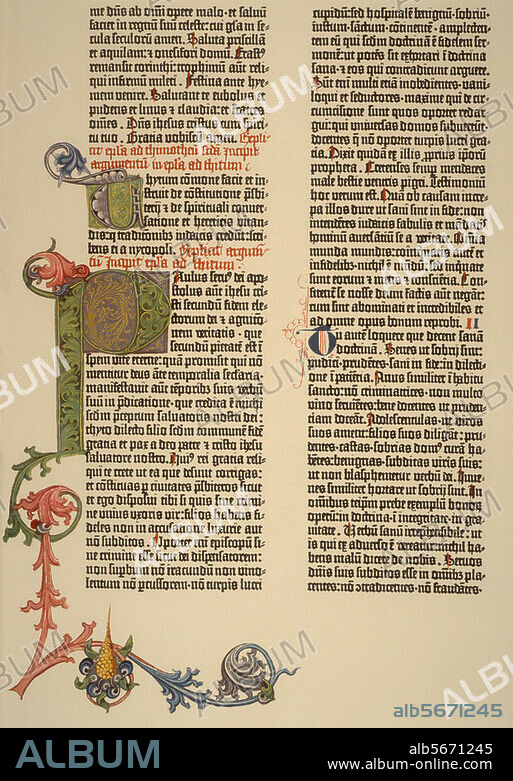 me dñs ab omi opere malo · et salvũ
faciet in regnũ suũ celeste: cui gloria in se-
cula seculorũ amen. Saluta priscillã
et aquilam: et onesifori domũ. Erast9
remansit corinthi: trophimũ aũt reli-
qui infirmũ mileti. Festina ante hye-
mem venire. Salutant te eubolus et
pudens et linus et claudia et fratres
omẽs. Dñs ihesus cristus cũ spiri-
tu tuo. Gratia vobiscũ amen. Expli-
cit epl'a ad thimotheũ scd'a incipit
argumentũ in epl'a ad thitum.
Thytum cõmone facit et in-
struit de cõstitucione prẽsbi-
terij et de spirituali conver-
satione et hereticis vitan-
dis: qui traditionib9 iudaicis credũt: scri-
bens ei a nycopoli. Explicit argumẽ-
tũ. Incipit epl'a ad thitum.
Paulus serv9 dei apo-
stolus aũt ihesu cristi
secundũ fidem elec-
torum dei et agnicio-
nem veritatis · que
secundũ pietatẽ est ĩ
spem vite eterne: quã promisit qui nõ
mentitur deus ãte tempora secularia:
manifestavit aũt tẽporib9 suis verbũ
suũ in p̃dicatione · que credita ẽ michi
scd'm preceptum salvatoris nostri dei:
thyto dilecto filio scd'm cõmunẽ fidẽ
gratia et pax a deo patre et cristo ihesu
salvatore nostro. Hui9 rei gratia reli-
qui te crete ut ea que desunt corrigas:
et cõstituas per civitates prẽsbiteros sicut
et ego disposui tibi si quis sine crimine
est · unius uxoris vir: filios habens fi-
deles non in accusatione luxurie aut
nõ subditos. Oportet enim episcopũ si-
ne crimine esse sicut dei dispensatorem:
non superbũ nõ iracundũ non vino-
lentum nõ percussorem · nõ turpis lucri
cupidũ: sed hospitalẽ benignũ · sobriũ ·
iustum · sanctum · continentẽ · amplecten-
tem eũ qui scd'm doctrinã ẽ fidelem ser-
monẽ: ut potẽs sit exhortari ĩ doctrina
sana · et eos qui contradicunt arguere.
Sunt eni multi etiã inobedientes · vani-
loqui et seductores · maxime qui de cir-
cumcisione sunt · quos oportet redar-
gui: qui universas domos subvertunt ·
docentes que nõ oportet turpis lucri gra-
tia. Dixit quidã ex illis proprius ipsorũ
propheta. Cretenses semper mendaces
male bestie ventris pigri. Testimoniũ
hoc verum est. Quã ob causam increpa
illos dure ut sani sint in fide: nõ in-
tendentes iudaicis fabulis et mãdatis
hominũ aversantiũ se a veritate. Omnia
munda mundis: coinquinatis aũt et
infidelib9 nichil mundũ: sed inquinate
sunt eorum et mẽs et cõsciẽtia. Con-
fitentur se nosse deum factis aut negãt:
cum sint abominati et incredibiles · et
ad omne opus bonum reprobi. II
Tu autẽ loquere que decent sanã
doctrinã. Senes ut sobrij sint ·
pudici · prudentes · sani in fide · in dilecti-
one ĩ paciẽtia. Anus similiter ĩ habitu
sancto: nõ criminatrices · non multo
vino servientes: bene docentes ut pruden-
tiam doceãt. Adolescentulas · ut viros
suos ament: filios suos diligãt: pru-
dentes · castas · sobrias · dom9 curã ha-
bẽtes: benignas · subditas viris suis:
ut non blasphemetur verbũ dei. Iuve-
nes similiter hortare ut sobrij sint. In
omnibus te ipsum prebe exemplũ bonorũ
operũ: in doctrina · ĩ integritate · in gra-
vitate. Verbũ sanũ irreprehẽsibile: ut
is qui ex adverso ẽ vereatur · nichil ha-
bens malũ dicere de nobis. Servos
dñis suis subditos esse in omnib9 pla-
centes: nõ contradicentes · nõ fraudãtes ·
ALBUM
alb5671245
ALBUM
alb5671245
www.album-online.com